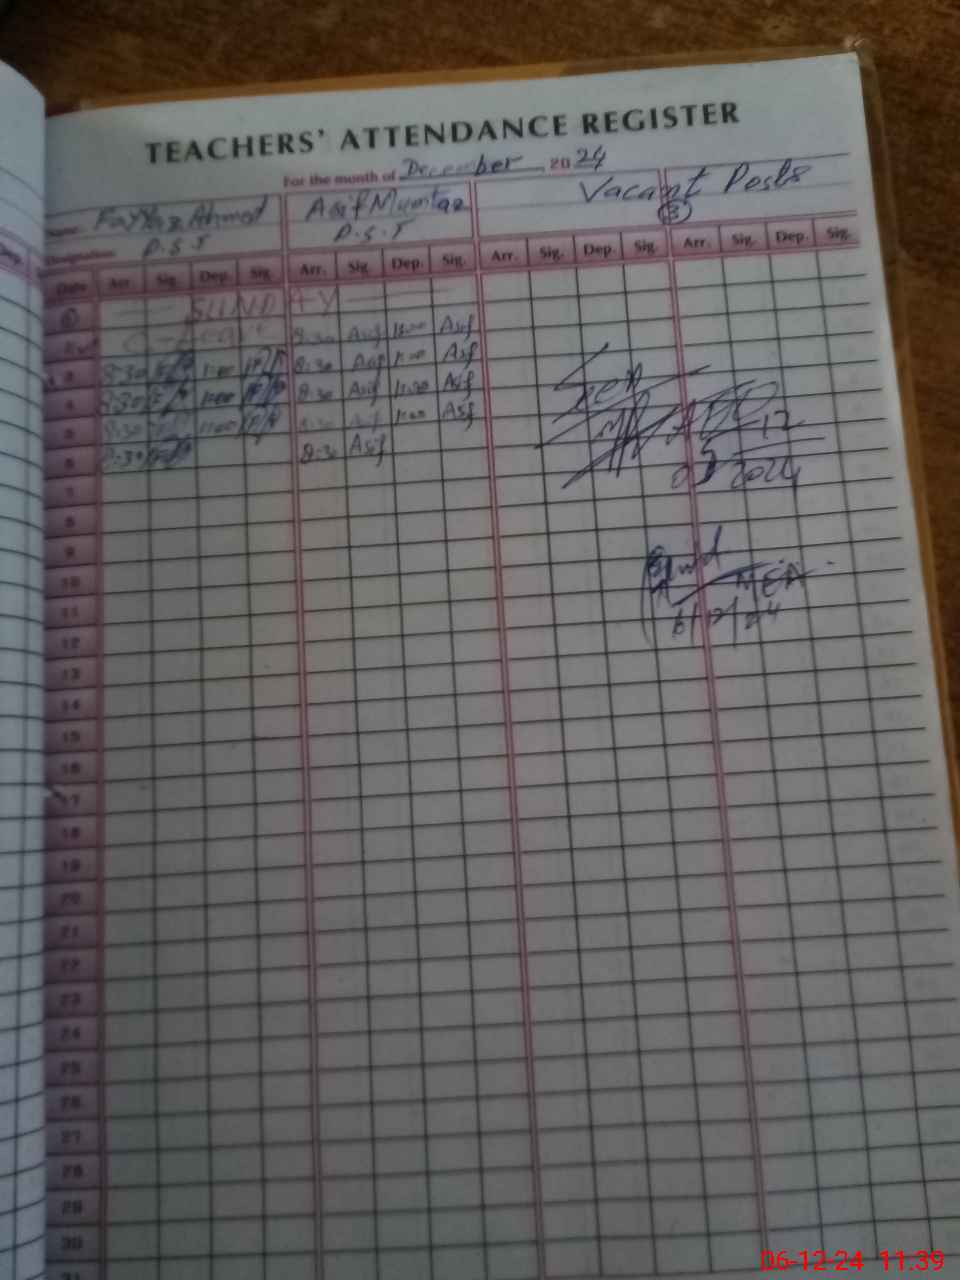 TEACHERS' ATTENDANCE REGISTER
For the month of December 2024
Name Fayyaz Ahmed Asif Mumtaz Vacant Posts
Designation P.S.T P.S.T (3)
Date Arr. Sig. Dep. Sig. Arr. Sig. Dep. Sig. Arr. Sig. Dep. Sig. Arr. Sig. Dep. Sig.
1 SUNDAY
8:30 Asif 11:00 Asif
3 8:30 1:00 8:30 Asif 1:00 Asif
4 8:30 1:00 8:30 Asif Asif
5 8:30 1:00 Asif 1:00 Asif
6 8:30 8:30 Asif
7
8
9
10
11
12
13
14
15
16
17
18
19
20
21
22
23
24
25
26
27
28
29
30
31
05-12
2024
MEA
6/12/24
Dep.
06-12-24 11:39